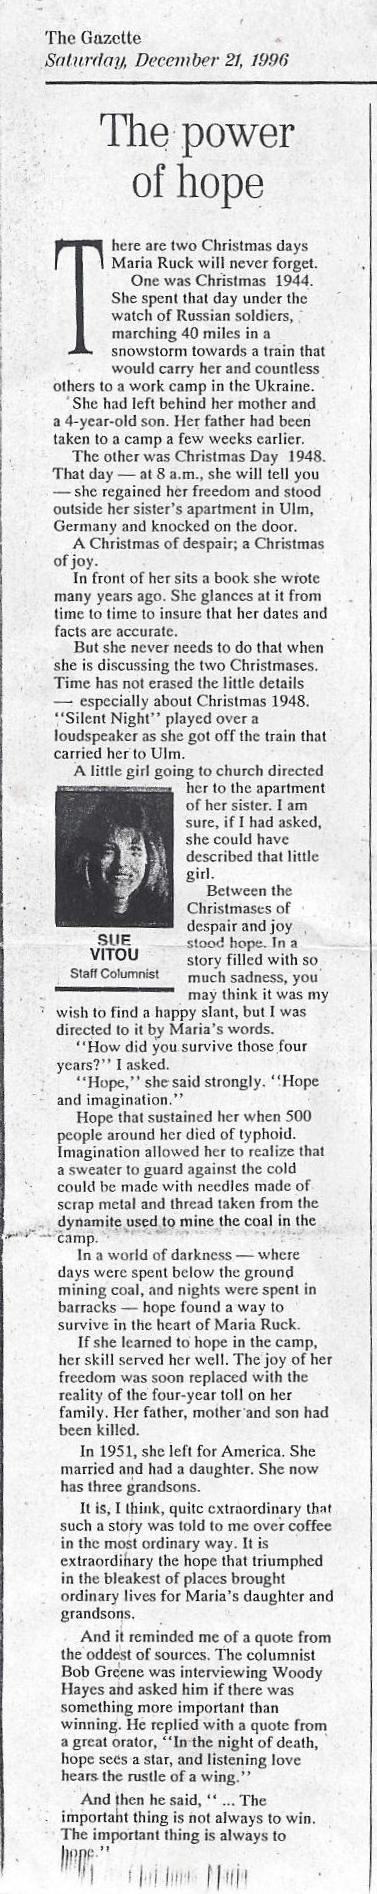 The Gazette
Saturday, December 21, 1996
The power
of hope
There are two Christmas days
Maria Ruck will never forget.
One was Christmas 1944.
She spent that day under the
watch of Russian soldiers,
marching 40 miles in a
snowstorm towards a train that
would carry her and countless
others to a work camp in the Ukraine.
She had left behind her mother and
a 4-year-old son. Her father had been
taken to a camp a few weeks earlier.
The other was Christmas Day 1948.
That day — at 8 a.m., she will tell you
— she regained her freedom and stood
outside her sister's apartment in Ulm,
Germany and knocked on the door.
A Christmas of despair; a Christmas
of joy.
In front of her sits a book she wrote
many years ago. She glances at it from
time to time to insure that her dates and
facts are accurate.
But she never needs to do that when
she is discussing the two Christmases.
Time has not erased the little details
— especially about Christmas 1948.
"Silent Night" played over a
loudspeaker as she got off the train that
carried her to Ulm.
A little girl going to church directed
her to the apartment
of her sister. I am
sure, if I had asked,
she could have
described that little
girl.
Between the
Christmases of
despair and joy
stood hope. In a
story filled with so
much sadness, you
may think it was my
SUE
VITOU
Staff Columnist
wish to find a happy slant, but I was
directed to it by Maria's words.
"How did you survive those four
years?" I asked.
"Hope," she said strongly. "Hope
and imagination."
Hope that sustained her when 500
people around her died of typhoid.
Imagination allowed her to realize that
a sweater to guard against the cold
could be made with needles made of
scrap metal and thread taken from the
dynamite used to mine the coal in the
camp.
In a world of darkness — where
days were spent below the ground
mining coal, and nights were spent in
barracks — hope found a way to
survive in the heart of Maria Ruck.
If she learned to hope in the camp,
her skill served her well. The joy of her
freedom was soon replaced with the
reality of the four-year toll on her
family. Her father, mother and son had
been killed.
In 1951, she left for America. She
married and had a daughter. She now
has three grandsons.
It is, I think, quite extraordinary that
such a story was told to me over coffee
in the most ordinary way. It is
extraordinary the hope that triumphed
in the bleakest of places brought
ordinary lives for Maria's daughter and
grandsons.
And it reminded me of a quote from
the oddest of sources. The columnist
Bob Greene was interviewing Woody
Hayes and asked him if there was
something more important than
winning. He replied with a quote from
a great orator, "In the night of death,
hope sees a star, and listening love
hears the rustle of a wing."
And then he said, " ... The
important thing is not always to win.
The important thing is always to
hope."